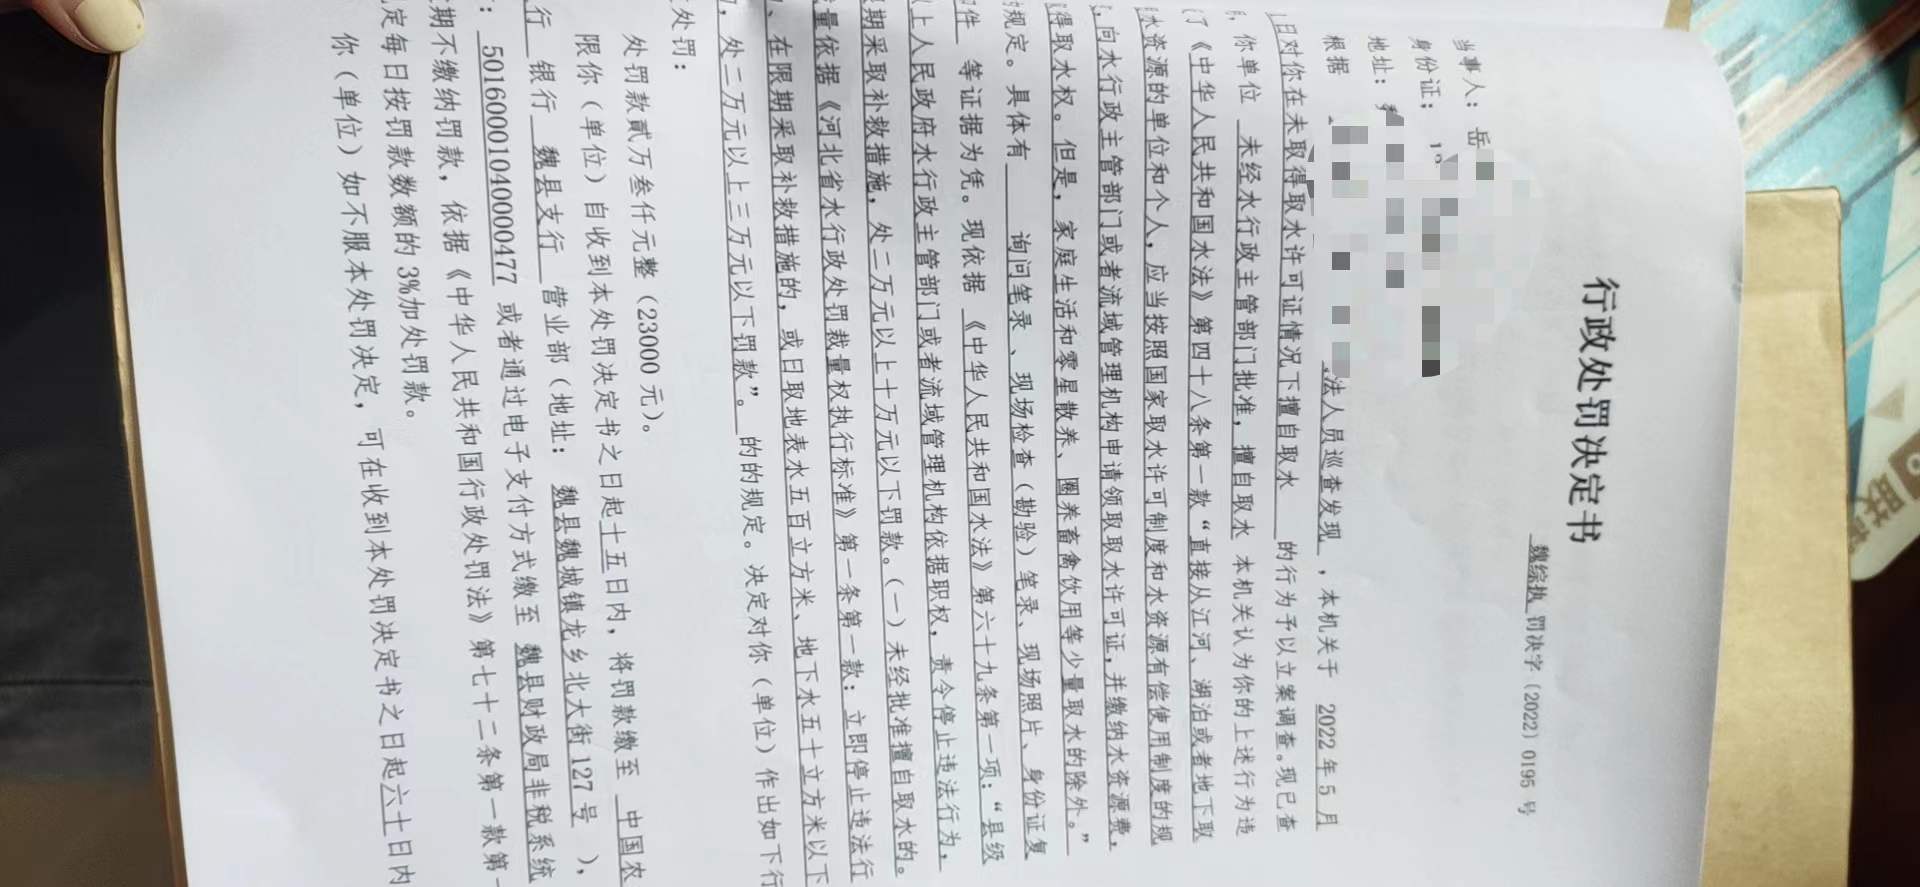 行政处罚决定书
魏综执 罚决字（2022）0195 号
当事人：岳
身份证：
地址：
根据 法人员巡查发现 ，本机关于 2022 年 5 月
日对你在未取得取水许可证情况下擅自取水 的行为予以立案调查。现已查
，你单位 未经水行政主管部门批准，擅自取水 本机关认为你的上述行为违
了《中华人民共和国水法》第四十八条第一款“直接从江河、湖泊或者地下取
水资源的单位和个人，应当按照国家取水许可制度和水资源有偿使用制度的规
，向水行政主管部门或者流域管理机构申请领取取水许可证，并缴纳水资源费，
得取水权。但是，家庭生活和零星散养、圈养畜禽饮用等少量取水的除外。”
的规定。具体有 询问笔录、现场检查（勘验）笔录、现场照片、身份证复
件 等证据为凭。现依据 《中华人民共和国水法》第六十九条第一项：“县级
以上人民政府水行政主管部门或者流域管理机构依据职权，责令停止违法行为，
期采取补救措施，处二万元以上十万元以下罚款。（一）未经批准擅自取水的。
量依据《河北省水行政处罚裁量权执行标准》第一条第一款：立即停止违法行
、在限期采取补救措施的，或日取地表水五百立方米、地下水五十立方米以下
，处二万元以上三万元以下罚款”。 的的规定。决定对你（单位）作出如下行
处罚：
处罚款贰万叁仟元整（23000 元）。
限你（单位）自收到本处罚决定书之日起十五日内，将罚款缴至 中国农
行 银行 魏县支行 营业部（地址： 魏县魏城镇龙乡北大街 127 号 ），
：50160001040000477 或者通过电子支付方式缴至 魏县财政局非税系统
期不缴纳罚款，依据《中华人民共和国行政处罚法》第七十二条第一款第一
定每日按罚款数额的 3%加处罚款。
你（单位）如不服本处罚决定，可在收到本处罚决定书之日起六十日内